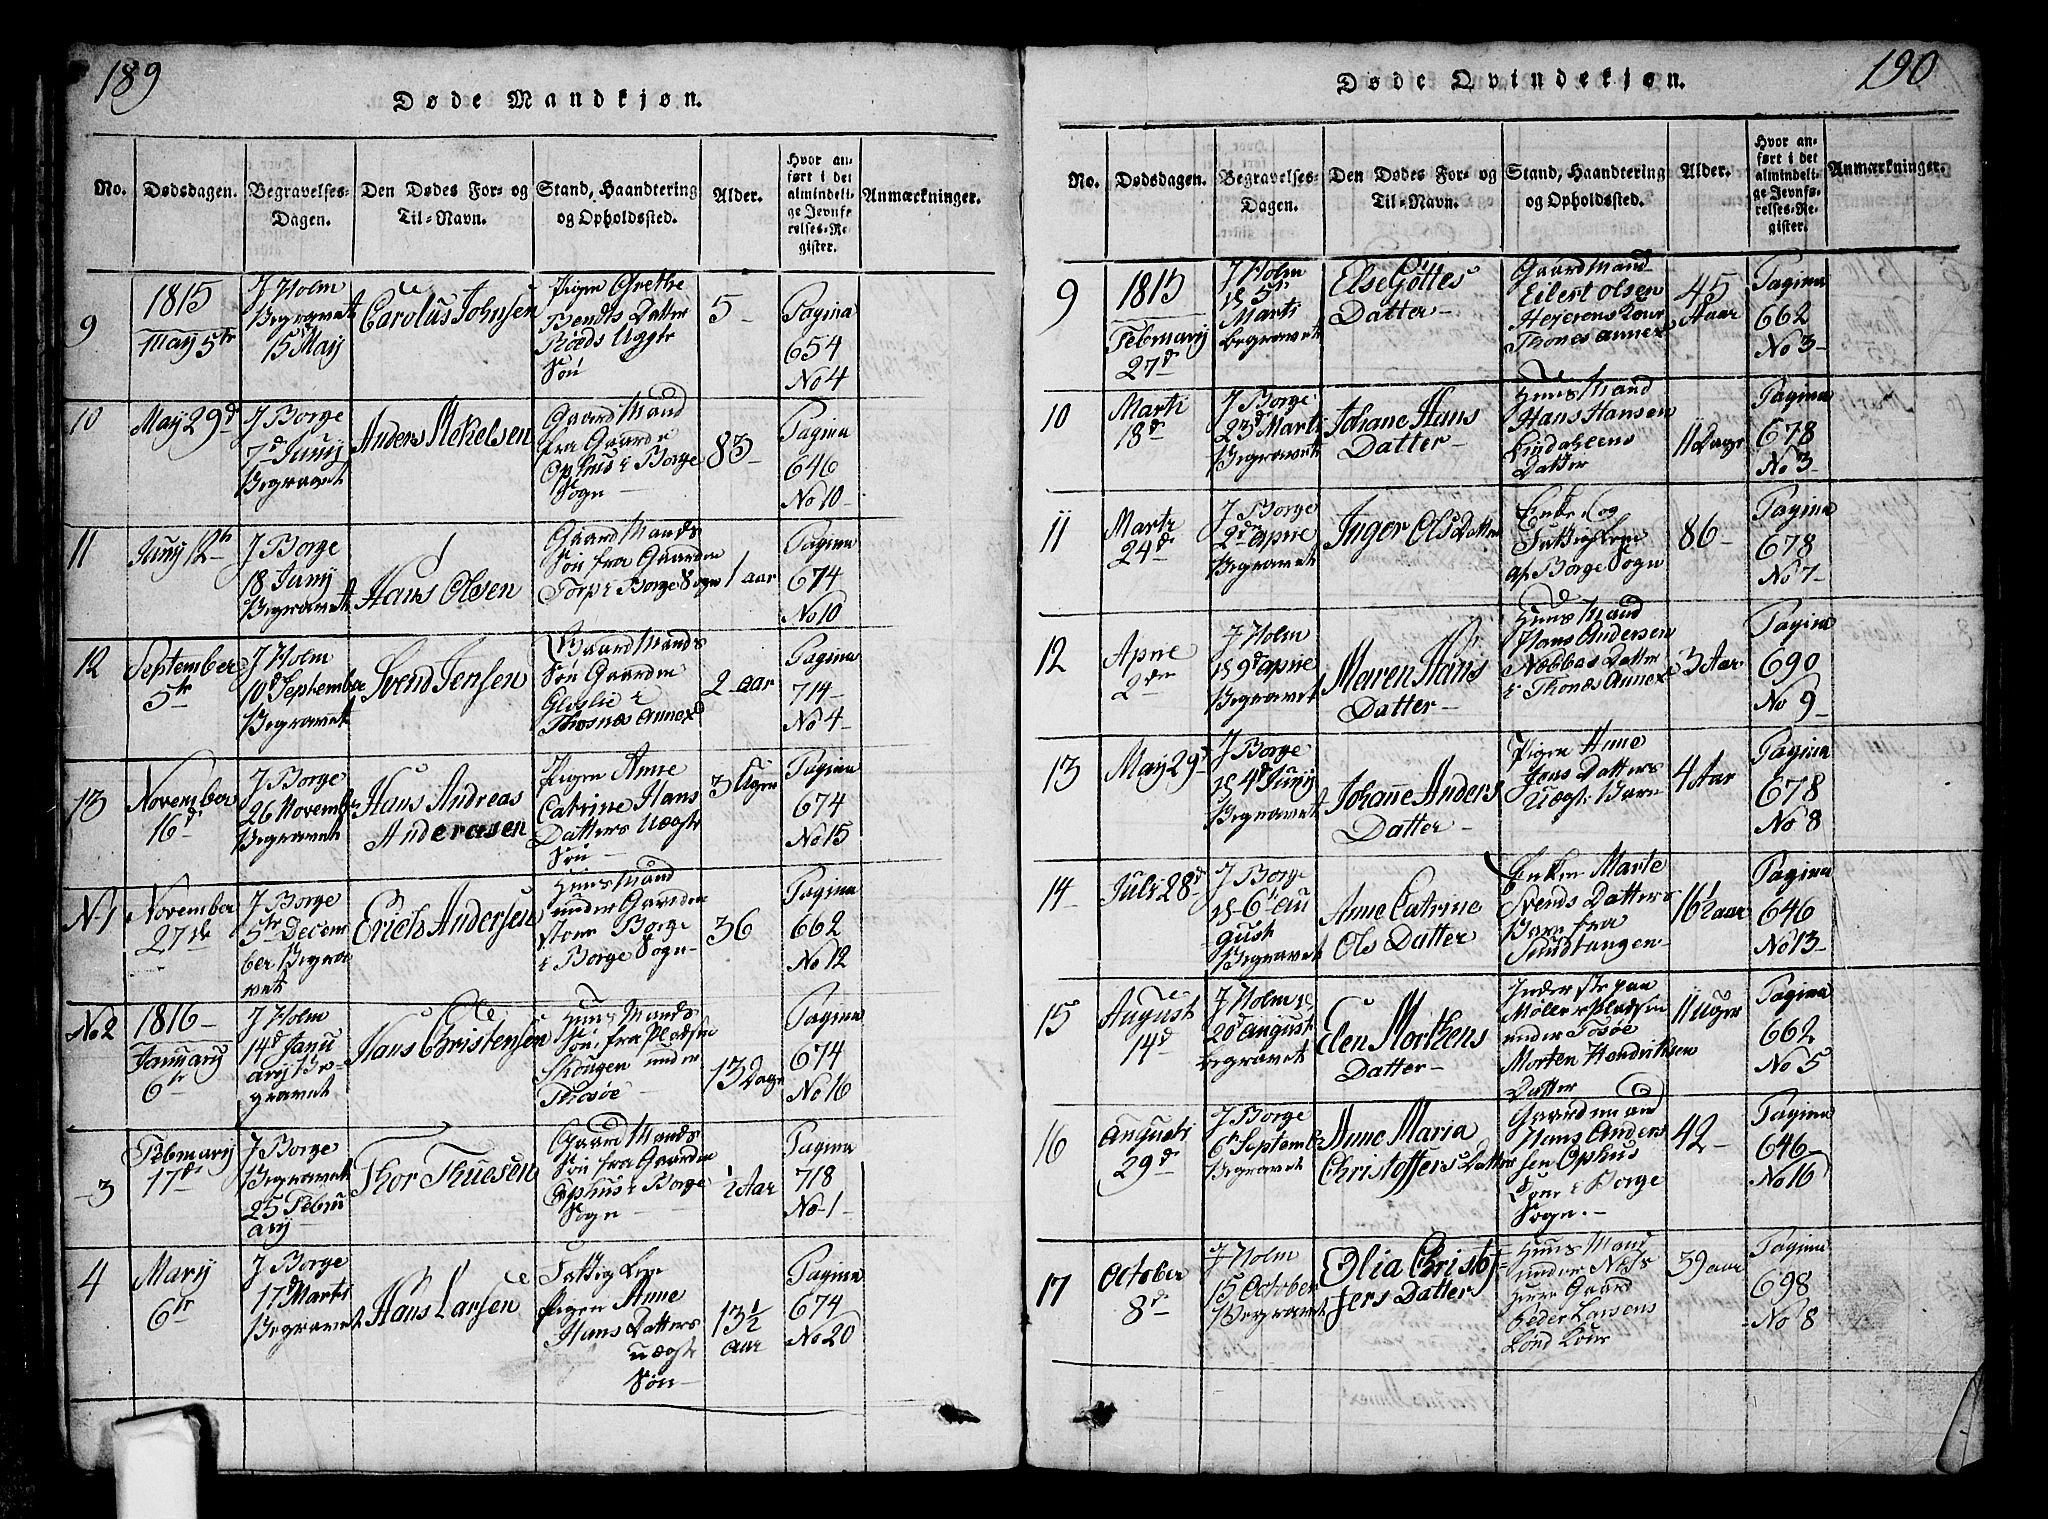 189
Døde Mandkjøn.
No.
Dødsdagen.
Begravelses-
Dagen.
Den Dødes For- og
Til-Navn.
Stand, Haandtering
og Opholdssted.
Alder.
Hvor an-
ført i det
almindeli-
ge Jevnfø-
relses-Re-
gister.
Anmærkninger.
9
1815
May 5te
J Holm
Begravet
15 May
Carolus Johnsen
Pigen Grethe
Bendts Datter
Røeds Uggte
Søn
5
Pagina
654
No 4
10
May 29d
J Borge
7d Juny
Begravet
Anders Mekelsen
Gaard Mand
fra Gaarde
Ophus i Borge
Sogn
83
Pagina
646
No 10
11
Juny 12th
J Borge
18 Juny
Begravet
Hans Olsen
Gaard Mands
Søn fra Gaarden
Torp i Borge Sogn
1 aar
Pagina
674
No 10
12
September
5te
J Holm
10d September
Begravet
Svend Jensen
Gaard Mands
Søn Gaarden
Gloslie i
Thosnæs Annex
2 aar
Pagina
714
No 4
13
November
16d
J Borge
26 November
Begravet
Hans Andreas
Anderasen
Pigen Anne
Catrine Hans
Datters Uægte
Søn
3 Ugen
Pagina
674
No 15
No 1
November
27de
J Borge
5te Decem
ber Begra
vet
Erich Andersen
Huus Mand
under Gaarden
store Borge
i Borge Sogn
36
Pagina
662
No 12
No 2
1816
January
6te
J Holm
14d Janu
ary Be-
gravet
Hans Christensen
Huus Mands
Søn fra Pladsen
Skougen under
Thosøe
13 Dage
Pagina
674
No 16
3
Februarij
17de
J Borge
Begravet
25 Febru
arij
Thor Thuesen
Gaard Mands
Søn fra Gaarden
Ophus i Borge
Sogn
½ Aar
Pagina
718
No 1
4
Marij
6te
J Borge
17d Marti
Begravet
Hans Larsen
Fattig Lem
Pigen Anne
Hans Datters
uægte
Søn
13½
aar
Pagina
674
No 20
190
Døde Qvindekjøn.
No.
Dødsdagen.
Begravelses-
Dagen.
Den Dødes For- og
Til-Navn.
Stand, Haandtering
og Opholdssted.
Alder.
Hvor an-
ført i det
almindeli-
ge Jevnfø-
relses-Re-
gister.
Anmærkninger.
9
1815
Februarij
27d
J Holm
d 5te
Marti
begravet
Else Gøttes
Datter
Gaard Mand
Eilert Olsen
Hejerens Kone
Thones Annex
45
Aar
Pagina
662
No 3
10
Marti
18d
J Borge
23d Marti
Begravet
Johane Hans
Datter
Huus Mand
Hans Hansen
Lindahleens
Datter
11 Dage
Pagina
678
No 3
11
Marti
24d
J Borge
2d Aprie
Begravet
Inger Ols Datter
Enke og
Fattig Lem
af Borge Sogn
86
Pagina
678
No 7
12
Aprie
2den
J Holm
d 9d Aprie
Begravet
Maren Hans
Datter
Huus Mand
Hans Andersen
Nabbas Datter
i Thonæs Annex
3 Aar
Pagina
690
No 9
13
May 29d
J Borge
d 4d Junij
Begravet
Johanne Anders
Datter
Pigen Anne
Hans Datters
Uægte Barn
4 Aar
Pagina
678
No 8
14
Juli 28d
J Borge
d 6t Au
gust
Begravet
Anne Catrine
Ols Datter
Enken Marte
Svends Datters
Barn fra
Sundtangen
16½ aar
Pagina
646
No 13
15
August
14d
J Holm
20d august
begravet
Elen Morthens
Datter
Inderste paa
Møller Pladsen
under Tosøe
Morten Hendriksen
Datter
11 Uger
Pagina
662
No 5
16
Augusti
29d
J Borge
6te Septemb
Begravet
Anne Maria
Christoffers Datter
Gaardmand
Hans Anders
sen Ophus
Kone i Borge
Sogn.
42
Pagina
646
No 16
17
October
8d
J Holm
15 October
Begravet
Olia Christof
fers Datter
Huus Mand
under Nes
Gaard
Peder Larsens
39 aar
Pagina
698
No 8